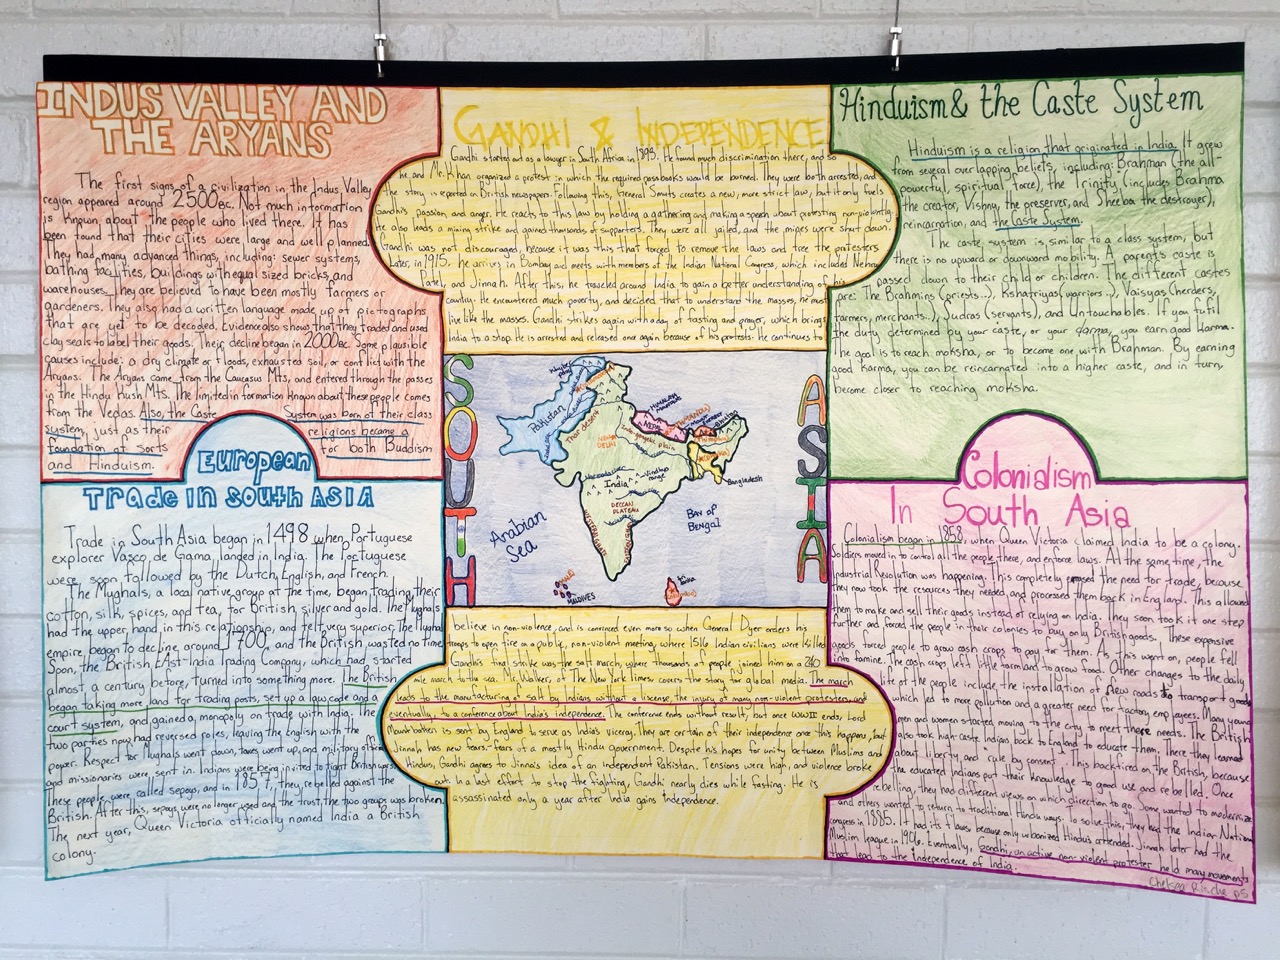 INDUS VALLEY AND
THE ARYANS
The first signs of a civilization in the Indus Valley
region appeared around 2500BC. Not much information
is known about the people who lived there. It has
been found that their cities were large and well planned.
They had many advanced things, including: sewer systems,
bathing facilities, buildings with equal sized bricks, and
warehouses. They are believed to have been mostly farmers or
gardeners. They also had a written language made up of pictographs
that are yet to be decoded. Evidence also shows that they traded and used
clay seals to label their goods. Their decline began in 2000BC. Some plausible
causes include: a dry climate or floods, exhausted soil, or conflict with the
Aryans. The Aryans came from the Caucasus Mts, and entered through the passes
in the Hindu Kush Mts. The limited information known about these people comes
from the Vedas. Also, the Caste System was born of their class
system, just as their religions became a
foundation of sorts for both Buddism
and Hinduism.
GANDHI & INDEPENDENCE
Gandhi started out as a lawyer in South Africa in 1893. He found much discrimination there, and so
he and Mr. Khan organized a protest in which the required passbooks would be burned. They were both arrested, and
the story is reported in British newspapers. Following this, General Smuts creates a new, more strict law, but it only fuels
Gandhi's passion and anger. He reacts to this law by holding a gathering and making a speech about protesting non-violently.
He also leads a mining strike and gained thousands of supporters. They were all jailed, and the mines were shut down.
Gandhi was not discouraged, because it was this that forced to remove the laws and free the protesters
Later, in 1915, he arrives in Bombay and meets with members of the Indian National Congress, which includes Nehru
Patel, and Jinnah. After this, he traveled around India to gain a better understanding of his
country. He encountered much poverty, and decided that to understand the masses, he must
live like the masses. Gandhi strikes again with a day of fasting and prayer, which brings
India to a stop. He is arrested and released once again because of his protests. He continues to
Hinduism & the Caste System
Hinduism is a religion that originated in India. It grew
from several overlapping beliefs, including: Brahman (the all-
powerful, spiritual force), the Trinity (includes Brahma
the creator, Vishnu, the preserver, and Sheeba the destroyer),
reincarnation, and the Caste System.
The caste system is similar to a class system, but
there is no upward or downward mobility. A parent's caste is
passed down to their child or children. The different castes
are: The Brahmins (priests...), Kshatriyas (warriors...), Vaisyas (herders,
farmers, merchants..), Sudras (servants), and Untouchables. If you fufil
the duty determined by your caste, or your darma, you earn good Karma.
The goal is to reach moksha, or to become one with Brahman. By earning
good Karma, you can be reincarnated into a higher caste, and in turn,
become closer to reaching moksha.
SOUTH
ASIA
Khyber
pass
Pakistan
Thar desert
NEW
DELHI
HIMALAYAN
NEPAL
Bhutan
Indo-gangetic plain
Narmada
Vindhya
range
India
DECCAN
PLATEAU
WESTERN GHATS
Bangladesh
Arabian
Sea
Bay of
Bengal
MALE
MALDIVES
Sri
Lanka
European
Trade in South ASIA
Trade in South Asia began in 1498 when Portuguese
explorer Vasco de Gama, landed in India. The Portuguese
were soon followed by the Dutch, English, and French.
The Mughals, a local native group at the time, began trading their
cotton, silk, spices, and tea, for British silver and gold. The Mughals
had the upper hand in this relationship, and felt very superior. The Mughal
empire began to decline around 1700, and the British wasted no time
Soon, the British East-India Trading Company, which had started
almost a century before, turned into something more. The British
began taking more land for trading posts, set up a law code and a
court system, and gained a monopoly on trade with India. The
two parties now had reversed roles, leaving the English with the
power. Respect for Mughals went down, taxes went up, and military officers
and missionaries were sent in. Indians were being invited to fight British wars.
These people were called sepoys, and in 1857, they rebelled against the
British. After this, sepoys were no longer used and the trust, the two groups was broken.
The next year, Queen Victoria officially named India a British
colony.
believe in non-violence, and is convinced even more so when General Dyer orders his
troops to open fire on a public, non-violent meeting, where 1516 Indian civilians were killed
Gandhi's final strike was the salt march, where thousands of people joined him on a 240
mile march to the sea. Mr. Walker, of The New York Times, covers the story for global media. The march
leads to the manufacturing of salt by Indians without a liscense, the injury of many non-violent protesters, and
eventually, to a conference about India's independence. The conference ends without result, but once WWII ends, Lord
Mountbatten is sent by England to serve as India's viceroy. They are certain of their independence once this happens, but
Jinnah has new fears-fears of a mostly Hindu government. Despite his hopes for unity between Muslims and
Hindus, Gandhi agrees to Jinna's idea of an independent Pakistan. Tensions were high, and violence broke
out. In a last effort to stop the fighting, Gandhi nearly dies while fasting. He is
assassinated only a year after India gains independence.
Colonialism
In South Asia
Colonialism began in 1858, when Queen Victoria claimed India to be a colony.
Soldiers moved in to control all the people there, and enforce laws. At the same time, the
Industrial Revolution was happening. This completely erased the need for trade, because
they now took the resources they needed and processed them back in England. This allowed
them to make and sell their goods instead of relying on India. They soon took it one step
further and forced the people in their colonies to buy only British goods. These expensive
goods forced people to grow cash crops to pay for them. As this went on, people fell
into famine. The cash crops left little farmland to grow food. Other changes to the daily
life of the people include the installation of new roads to transport goods
which led to more pollution and a greater need for factory employees. Many young
men and women started moving to the city to meet there needs. The British
also took high-caste Indians back to England to educate them. There they learned
about liberty, and "rule by consent". This backfired on the British, because
the educated Indians put their knowledge to good use and rebelled. Once
rebelling, they had different views on which direction to go. Some wanted to modernize
and others wanted to return to traditional Hindu ways. To solve this, they had the Indian National
congress in 1885. It had its flaws because only urbanized Hindus attended. Jinnah later had the
Muslim league in 1906. Eventually, Gandhi, an active non-violent protester held many movements
that lead to the Independence of India.
Chelsea Ritchie p5